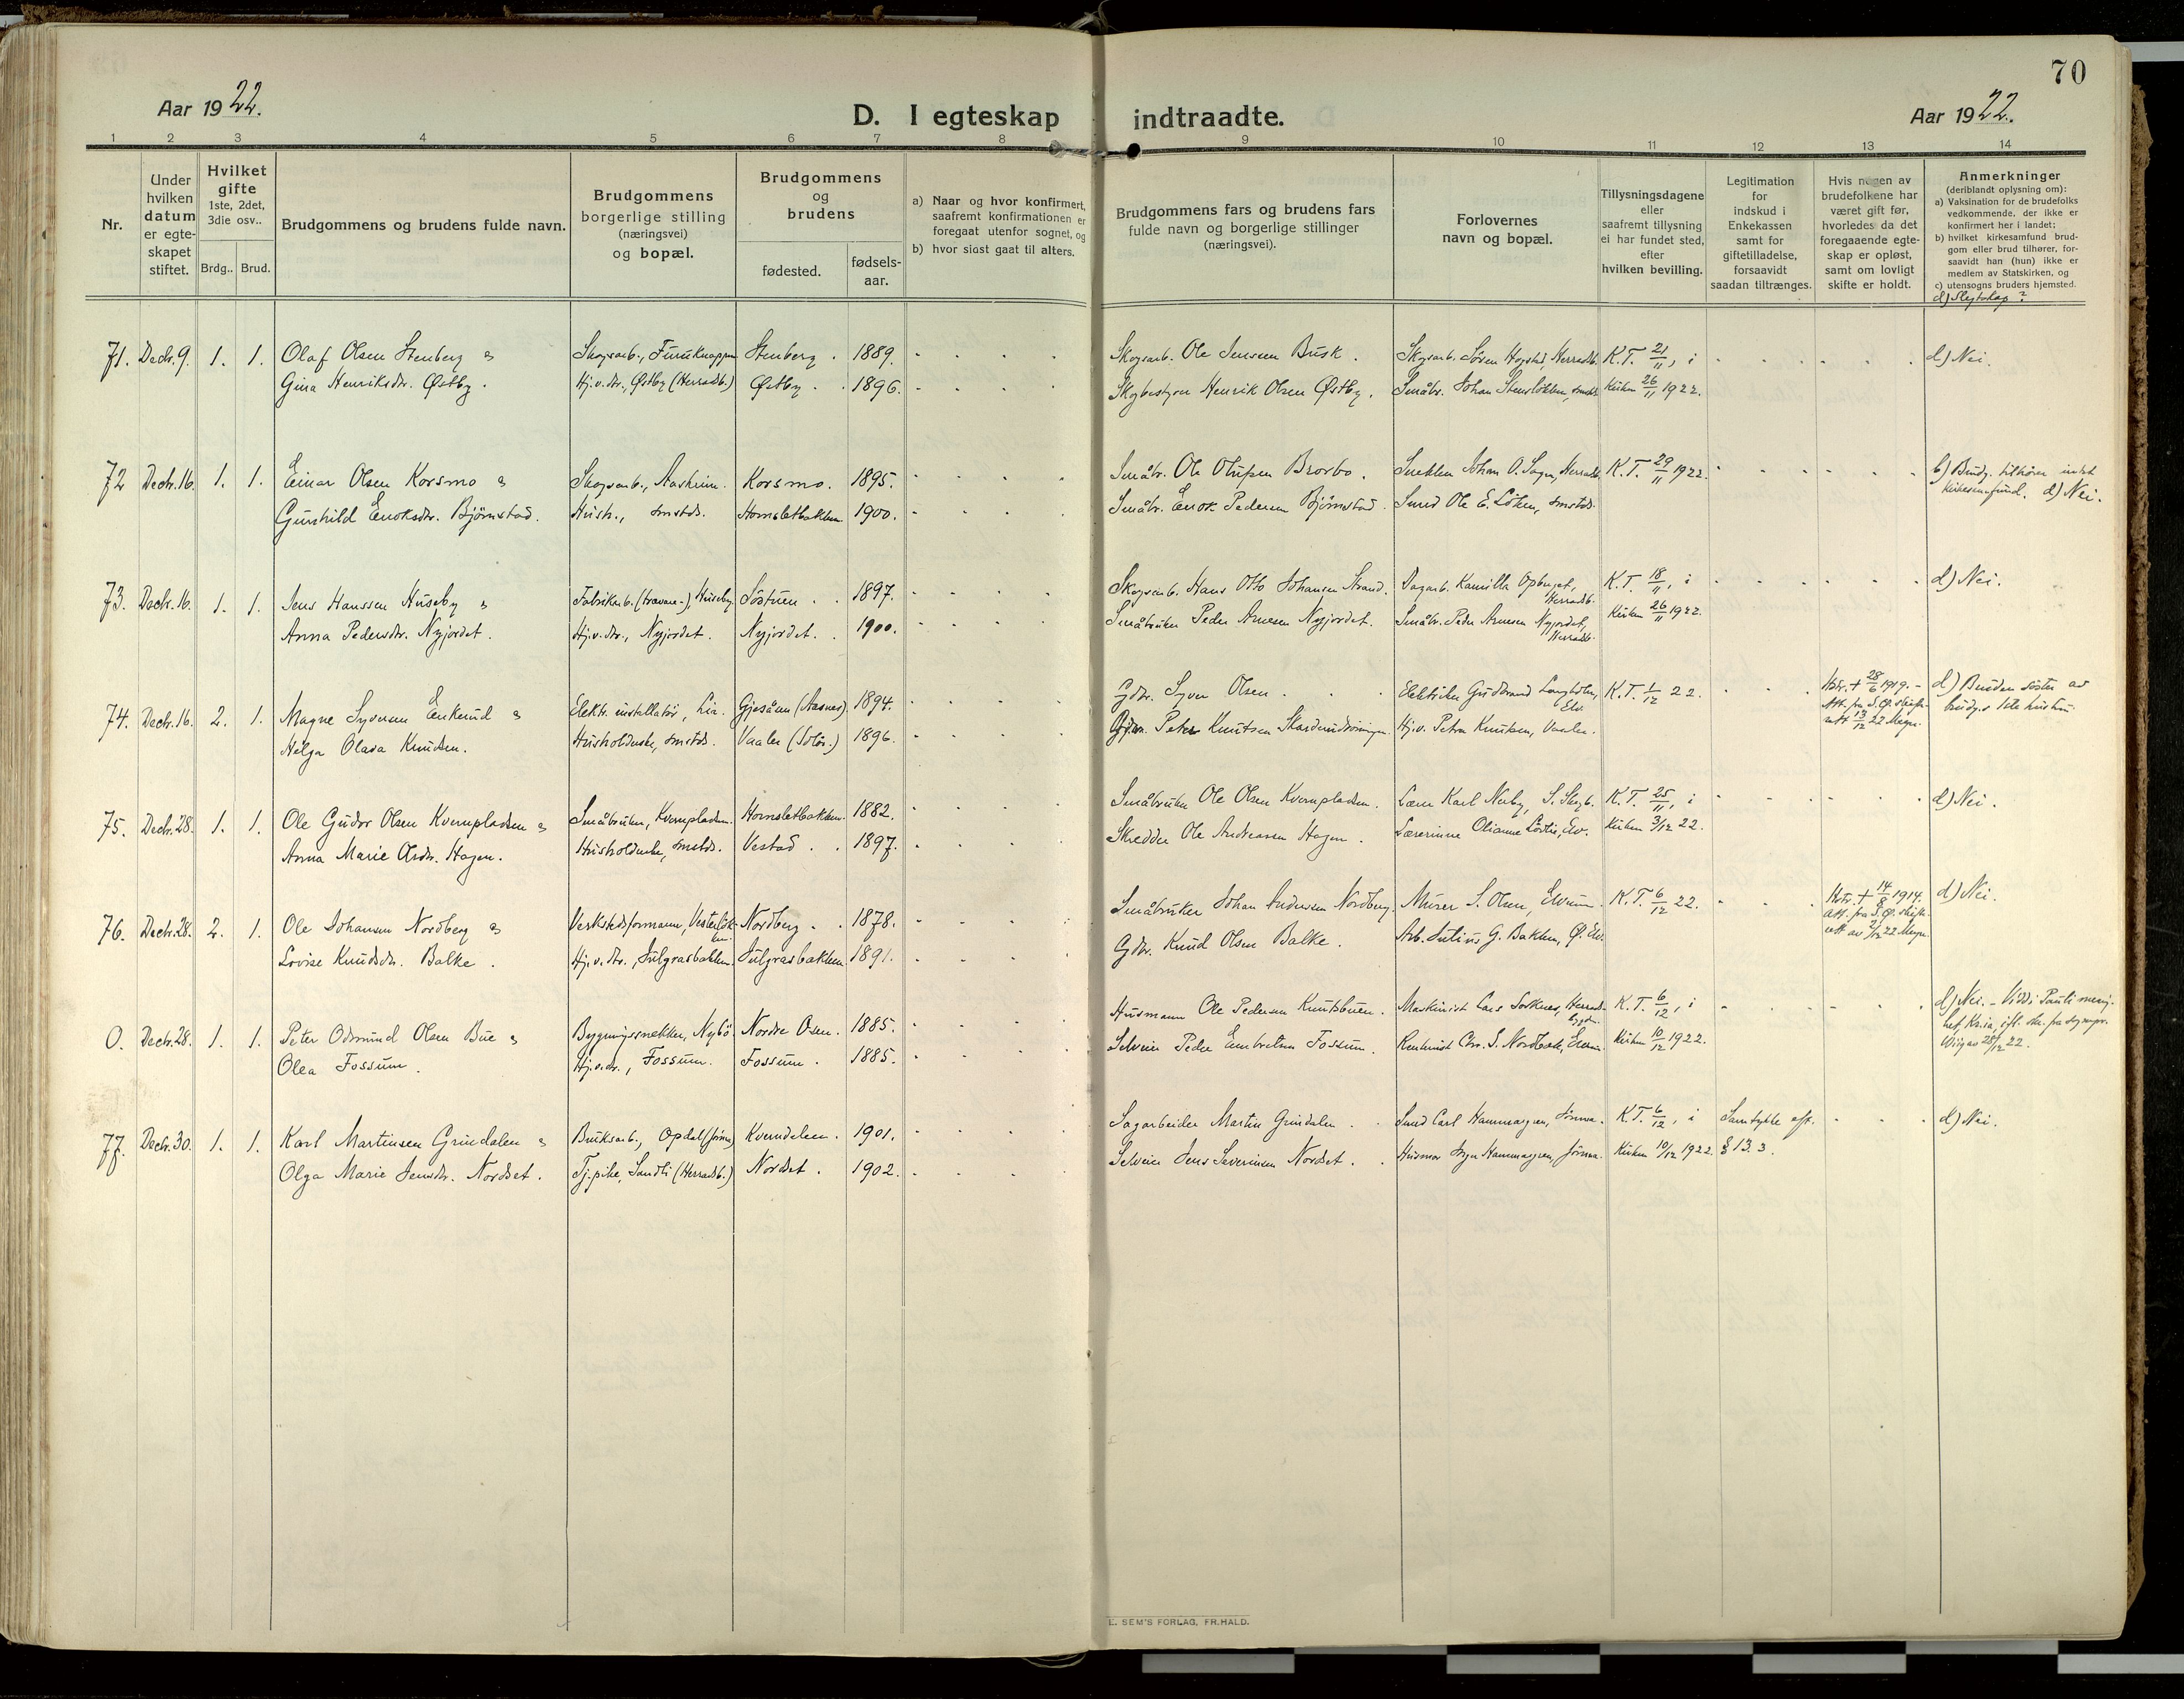 70
Aar 1922.
D. I egteskap indtraadte.
Aar 1922.
1 2 3 4 5 6 7 8 9 10 11 12 13 14
Nr.
Under hvilken datum er egteskapet stiftet.
Hvilket gifte 1ste, 2det, 3die osv..
Brdg.. Brud.
Brudgommens og brudens fulde navn.
Brudgommens borgerlige stilling (næringsvei) og bopæl.
Brudgommens og brudens
fødested.
fødsels-aar.
a) Naar og hvor konfirmert, saafremt konfirmationen er foregaat utenfor sognet, og
b) hvor sidst gaat til alters.
Brudgommens fars og brudens fars fulde navn og borgerlige stillinger (næringsvei).
Forlovernes navn og bopæl.
Tillysningsdagene eller saafremt tillysning ei har fundet sted, efter hvilken bevilling.
Legitimation for indskud i Enkekassen samt for giftetilladelse, forsaavidt saadan tiltrænges.
Hvis nogen av brudefolkene har været gift før, hvorledes da det foregaaende egteskap er opløst, samt om lovligt skifte er holdt.
Anmerkninger (deriblandt oplysning om):
a) Vaksination for de brudefolks vedkommende, der ikke er konfirmert her i landet;
b) hvilket kirkesamfund brudgom eller brud tilhører, forsaavidt han (hun) ikke er medlem av Statskirken, og
c) utensogns bruders hjemsted.
d) Slegtskap?
71. Decbr. 9. 1. 1. Olaf Olsen Stenberg & Skogsarb., Furuknappen Stenberg. 1889. Skogsarb. Ole Jensen Busk. Skogsarb. Søren Hogstad, Herradsb. K.T. 21/11, i d) Nei.
Gina Henriksdr. Østby. Hj.v.dr., Østby (Herradsb.) Østby. 1896. Skogbestyrer Henrik Olsen Østby. Småbr. Johan Stensløkken, smstds. Kirken 26/11 1922.
72 Decbr. 16. 1. 1. Einar Olsen Korsmo & Skogsarb., Aasheim. Korsmo. 1895. Småbr. Ole Olufsen Brorbo. Snekker Johan O. Sagen, Herradsb. K.T. 29/11 1922. b) Brudg. tilhører intet
Gunhild Enoksdr. Bjørnstad. Hush., smstds. Hornsletbakken. 1900. Småbr. Enok Pedersen Bjørnstad. Smed Ole E. Løken, smstds. kirkesamfund. d) Nei.
73. Decbr. 16. 1. 1. Jens Hanssen Huseby & Fabrikarb. (trævare-), Huseby Søstuen. 1897. Skogsarb. Hans Otto Johansen Strand. Dagarb. Kamilla Ophuset, Herradsb. K.T. 18/11, i d) Nei.
Anna Pedersdr. Nyjordet. Hj.v.dr., Nyjordet. Nyjordet. 1900. Småbruker Peder Arnesen Nyjordet. Småbr. Peder Arnesen Nyjordet, Herradsb. Kirken 26/11 1922.
74. Decbr. 16. 2. 1. Magne Syversen Enkerud & Elektr. installatør, Lia. Gjesåsen (Aasnes). 1894. Gdbr. Syver Olsen. Elektriker Gudbrand Langholen, Elv. K.T. 1/12 22. Hstr. + 28/6 1919. - d) Bruden søster av
Helga Olava Knudsen. Husholderske, smstds. Vaaler (Solør.) 1896. Peter Knutsen Hj.v. Petra Knutsen, Vaaler. Att. fra S.Ø. skifte- brudg.s 1ste hustru
rett 13/12 22
75. Decbr. 28. 1. 1. Ole Gudor Olsen Kvernpladsen & Småbruker, Kvernpladsen. Hornsletbakken. 1882. Småbruker Ole Olsen Kvernpladsen. Lærer Karl Nerby, S. Skogb. K.T. 25/11, i d) Nei.
Anna Marie Olsdr. Hagen. Husholderske, smstds. Vestad. 1897. Skredder Ole Andreassen Hagen. Lærerinne Olianne Løvlie, Elv. Kirken 3/12 22.
76. Decbr. 28. 2. 1. Ole Johansen Nordberg & Verkstedsformann, Vesterløkken. Nordberg. 1878. Småbruker Johan Andersen Nordberg. Murer S. Olsen, Elverum. K.T. 6/12 22. Hstr. + 14/8 1914. d) Nei.
Lovise Knudsdr. Balke. Hj.v.dr., Julgrasbakken. Julgrasbakken 1891. Gdbr. Knud Olsen Balke. Arb. Julius G. Bakken, Ø. Elv. Att. fra S.Ø. skifte-
rett av 2/12 22
0. Decbr. 28. 1. 1. Peter Odmund Olsen Bue & Bygningssnekker, Nybö. Nordre Osen. 1885. Husmann Ole Pedersen Knutsbuen. Maskinist Lars K.T. 6/12, i d) Nei. - Viddi Pauli menig-
Olea Fossum. Hj.v.dr., Fossum. Fossum. 1885. Selveier Peder Embretsen Fossum. Rentenist Chr. S. Nordbæk, Elverum. Kirken 10/12 1922. het, Kr.ia, ifl. skr. fra sognepr.
77. Decbr. 30. 1. 1. Karl Martinsen Grindalen & Bruksarb., Opdal (Jömna) Kverndalen. 1901. Sagarbeider Martin Grindalen. Smed Carl Hammargren, Jömna. K.T. 6/12, i Samtykke eft. d) Nei.
Olga Marie Jensdr. Nordset. Tj.pike, Sandli (Herradsb.) Nordset. 1902. Selveier Jens Severinsen Nordset. Husmor Inga Hammargren, Jömna. Kirken 10/12 1922. § 13.3.
E. SEM'S FORLAG, FR.HALD.